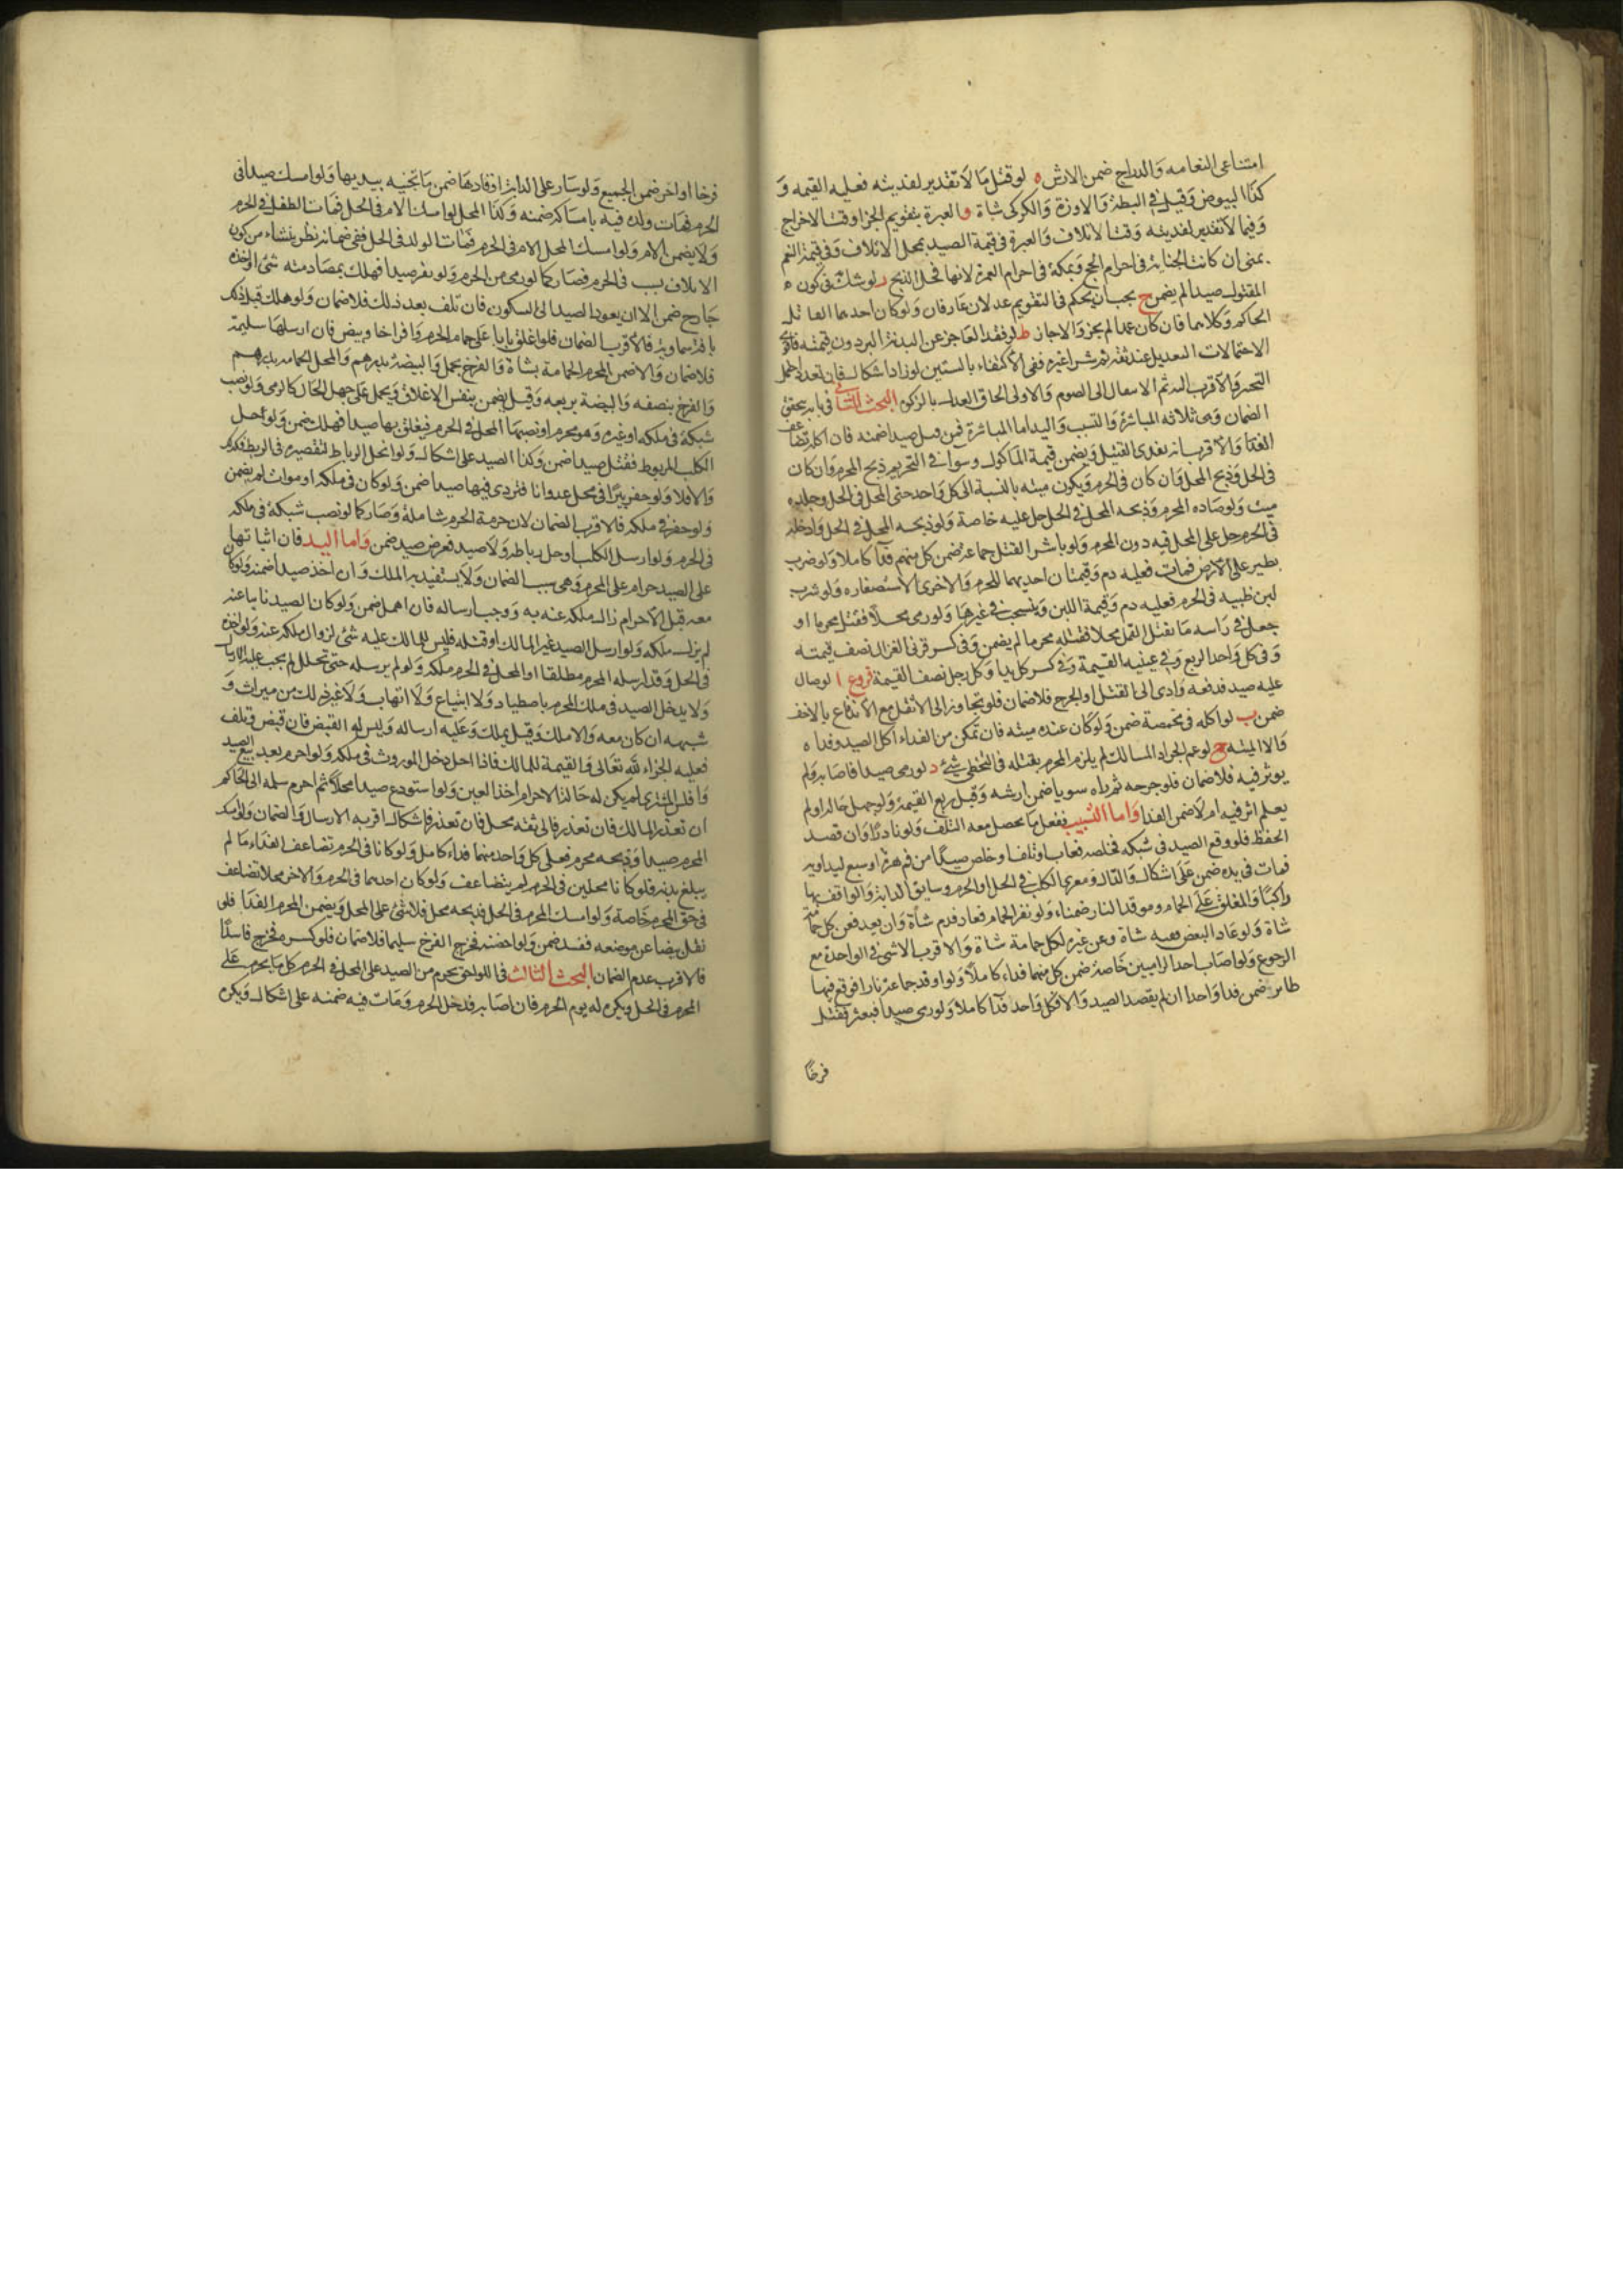 امتناعى النعامه والدراج ضمن الارش ه لو قتل ما لا تقدير لفديته فعليه القيمه و
كذا البيوض وقيل فى البطة والاوزة والكركى شاة و العبرة بتقويم الجزا وقت الاخراج
وفيما لا تقدير لفديته وقت الاتلاف والعبرة فى قيمة الصيد بمحل الاتلاف وفى قيمة النعم
بمنى ان كانت الجناية فى احرام الحج وبمكة فى احرام العمرة لانها محل الذبح ز لو شك فى كون
المقتول صيدا لم يضمن ح يجب ان يحكم فى التقويم عدلان عارفان ولو كان احدهما القاتل
الحاكم وكلاهما فان كان عمدا لم يجز والا جاز ط لو فقد العاجز عن البدنة البر دون قيمته فاقوى
الاحتمالات التعديل عند ثقة ثم شراء غيره ففى الاكتفاء بالستين لو زاد اشكال فان تعدد احتمل
التخير والاقرب انه ثم الانتقال الى الصوم والاولى الحاق العدل بالزكوة البحث الثانى فيما به يتحقق
الضمان وهى ثلاثه المباشرة والتسبب واليد اما المباشرة فمن قتل صيدا ضمنه فان اكله تضاعف
الفدا والاقرب انه يفدى القتيل ويضمن قيمة الماكول وسوا فى التحريم ذبح المحرم وان كان
فى الحل وذبح المحل وان كان فى الحرم ويكون ميته بالنسبة الى كل واحد حتى المحل فى الحل وجلده
ميت ولو صاده المحرم وذبحه المحل فى الحل حل عليه خاصة ولو ذبحه المحل فى الحل وادخله
فى الحرم حل على المحل فيه دون المحرم ولو باشر القتل جماعة ضمن كل منهم فدآ كاملا ولو ضرب
بطير على الارض فمات فعليه دم وقيمتان احديهما للحرم والاخرى لاستصغاره ولو شرب
لبن ظبيه فى الحرم فعليه دم وقيمة اللبن وينسحب فى غيرها ولو رمى محلا فقتل محرما او
جعل فى راسه ما يقتل القمل محلا فقتله محرما لم يضمن وفى كسر قرنى الغزال نصف قيمته
وفى كل واحد الربع وفى عينيه القيمة وفى كسر كل يد او كل رجل نصف القيمة فروع ا لو صال
عليه صيد فدفعه وادى الى القتل او الجرح فلا ضمان فلو تجاوز الى الاثقل مع الاندفاع بالاخف
ضمن ب لو اكله فى مخمصة ضمن ولو كان عنده ميته فان تمكن من الفداء اكل الصيد وفداه
والا الميته ج لو عم الجراد المسالك لم يلزم المحرم بقتله فى التخطى شئ د لو رمى صيدا فاصابه ولم
يوثر فيه فلا ضمان فلو جرحه ثم راه سويا ضمن ارشه وقيل ربع القيمة ولو جهل حاله او لم
يعلم اثر فيه ام لا ضمن الفدا واما التسبيب ففعل ما يحصل معه التلف ولو نادرًا وان قصد
الحفظ فلو وقع الصيد فى شبكه فخلصه فعاب او تلف او خلص صيدًا من فم هرة او سبع ليداويه
فمات فى يده ضمن على اشكال والدال ومغرى الكلب فى الحل او الحرم وسايق الدابة والواقف بها
راكبًا والمغلق على الحمام وموقد النار ضمناء ولو نفر الحمام فعاد فدم شاة وان يعد فعن كل حمامة
شاة ولو عاد البعض ففيه شاة وعن غيره لكل حمامة شاة والاقرب لا شئ فى الواحدة مع
الرجوع ولو اصاب احد الراميين خاصة ضمن كل منهما فداء كاملًا ولو اوقد جماعة نارا فوقع فيها
طاير ضمن فدا واحدا ان لم يقصد الصيد والا فكل واحد فدآ كاملا ولو رمى صيدا فبعثر فقتل
فرخًا
فرخا او اخر ضمن الجميع ولو سار على الدابة او قادها ضمن ما تجنيه بيديها ولو امسك صيدا فى
الحرم فمات ولده فيه بامساكه ضمنه وكذا المحل لو امسك الام فى الحل فمات الطفل فى الحرم
ولا يضمن الام ولو امسك المحل الام فى الحرم فمات الولد فى الحل ففى ضمانه نظر ينشاء من كون
الاتلاف بسبب فى الحرم فصار كما لو رمى من الحرم ولو نفر صيدا فهلك بمصادمته شئ او اخذه
جارح ضمن الا ان يعود الصيد الى السكون فان تلف بعد ذلك فلا ضمان ولو هلك قبل ذلك
بافة سماوية فالاقرب الضمان فلو اغلق بابا على حمام الحرم وافراخا وبيض فان ارسلها سليمة
فلا ضمان والا ضمن المحرم الحمامة بشاة والفرخ بحمل والبيضة بدرهم والمحل الحمامه بدرهم
والفرخ بنصفه والبيضة بربعه وقيل يضمن بنفس الاغلاق ويحمل على جهل الحال كالرمى ولو نصب
شبكة فى ملكه او غيره وهو محرم او نصبها المحل فى الحرم فيغلق بها صيدا فهلك ضمن ولو احل
الكلب المربوط فقتل صيدا ضمن وكذا الصيد على اشكال ولو انحل الرباط لتقصيره فى الربط فكذلك
والا فلا ولو حفر بيرًا فى محل عدوانا فتردى فيها صيدا ضمن ولو كان فى ملكه او موات لم يضمن
ولو حفر فى ملكه فالاقرب الضمان لان حرمة الحرم شاملة وصار كما لو نصب شبكة فى ملكه
فى الحرم ولو ارسل الكلب او حل رباطه ولا صيد فعرض صيد ضمن واما اليد فان اثباتها
على الصيد حرام على المحرم وهى سبب الضمان ولا يستفيد به الملك وان اخذ صيدا ضمنه ولو كان
معه قبل الاحرام زال ملكه عنه به ووجب ارساله فان اهمل ضمن ولو كان الصيد نايبا عنه
لم يزل ملكه ولو ارسل الصيد غير المالك او قتله فليس للمالك عليه شئ لزوال ملكه عنه ولو اخذه
فى الحل وقد ارسله المحرم مطلقا او المحل فى الحرم ملكه ولو لم يرسله حتى تحلل لم يجب عليه الارسال
ولا يدخل الصيد فى ملك المحرم باصطياد ولا ابتياع ولا اتهاب ولا غير ذلك من ميراث و
شبهه ان كان معه والا ملك وقيل يملك وعليه ارساله وليس له القبض فان قبض وتلف
فعليه الجزاء لله تعالى والقيمة للمالك فاذا احل دخل الموروث فى ملكه ولو احرم بعد بيع الصيد
وافلس المشترى لم يكن له حالة الاحرام اخذ العين ولو استودع صيدا محلًا ثم احرم سلمه الى الحاكم
ان تعذر المالك فان تعذر فالى ثقه محل فان تعذر فاشكال اقربه الارسال والضمان ولو امسك
المحرم صيدا وذبحه محرم فعلى كل واحد منهما فداء كامل ولو كانا فى الحرم تضاعف الفداء ما لم
يبلغ بدنة فلو كانا محلين فى الحرم لم يتضاعف ولو كان احدهما فى الحرم والاخر محلا تضاعف
فى حق المحرم خاصة ولو امسك المحرم فى الحل فذبحه محل فلا شئ على المحل ويضمن المحرم الفدا فلو
نقل بيضا عن موضعه ففسد ضمن ولو احضنه فخرج الفرخ سليما فلا ضمان فلو كسره فخرج فاسدًا
فالاقرب عدم الضمان البحث الثالث فى اللواحق يحرم من الصيد على المحل فى الحرم كل ما يحرم على
المحرم فى الحل ويكره له يوم الحرم فان اصابه فدخل الحرم ومات فيه ضمنه على اشكال ويكره